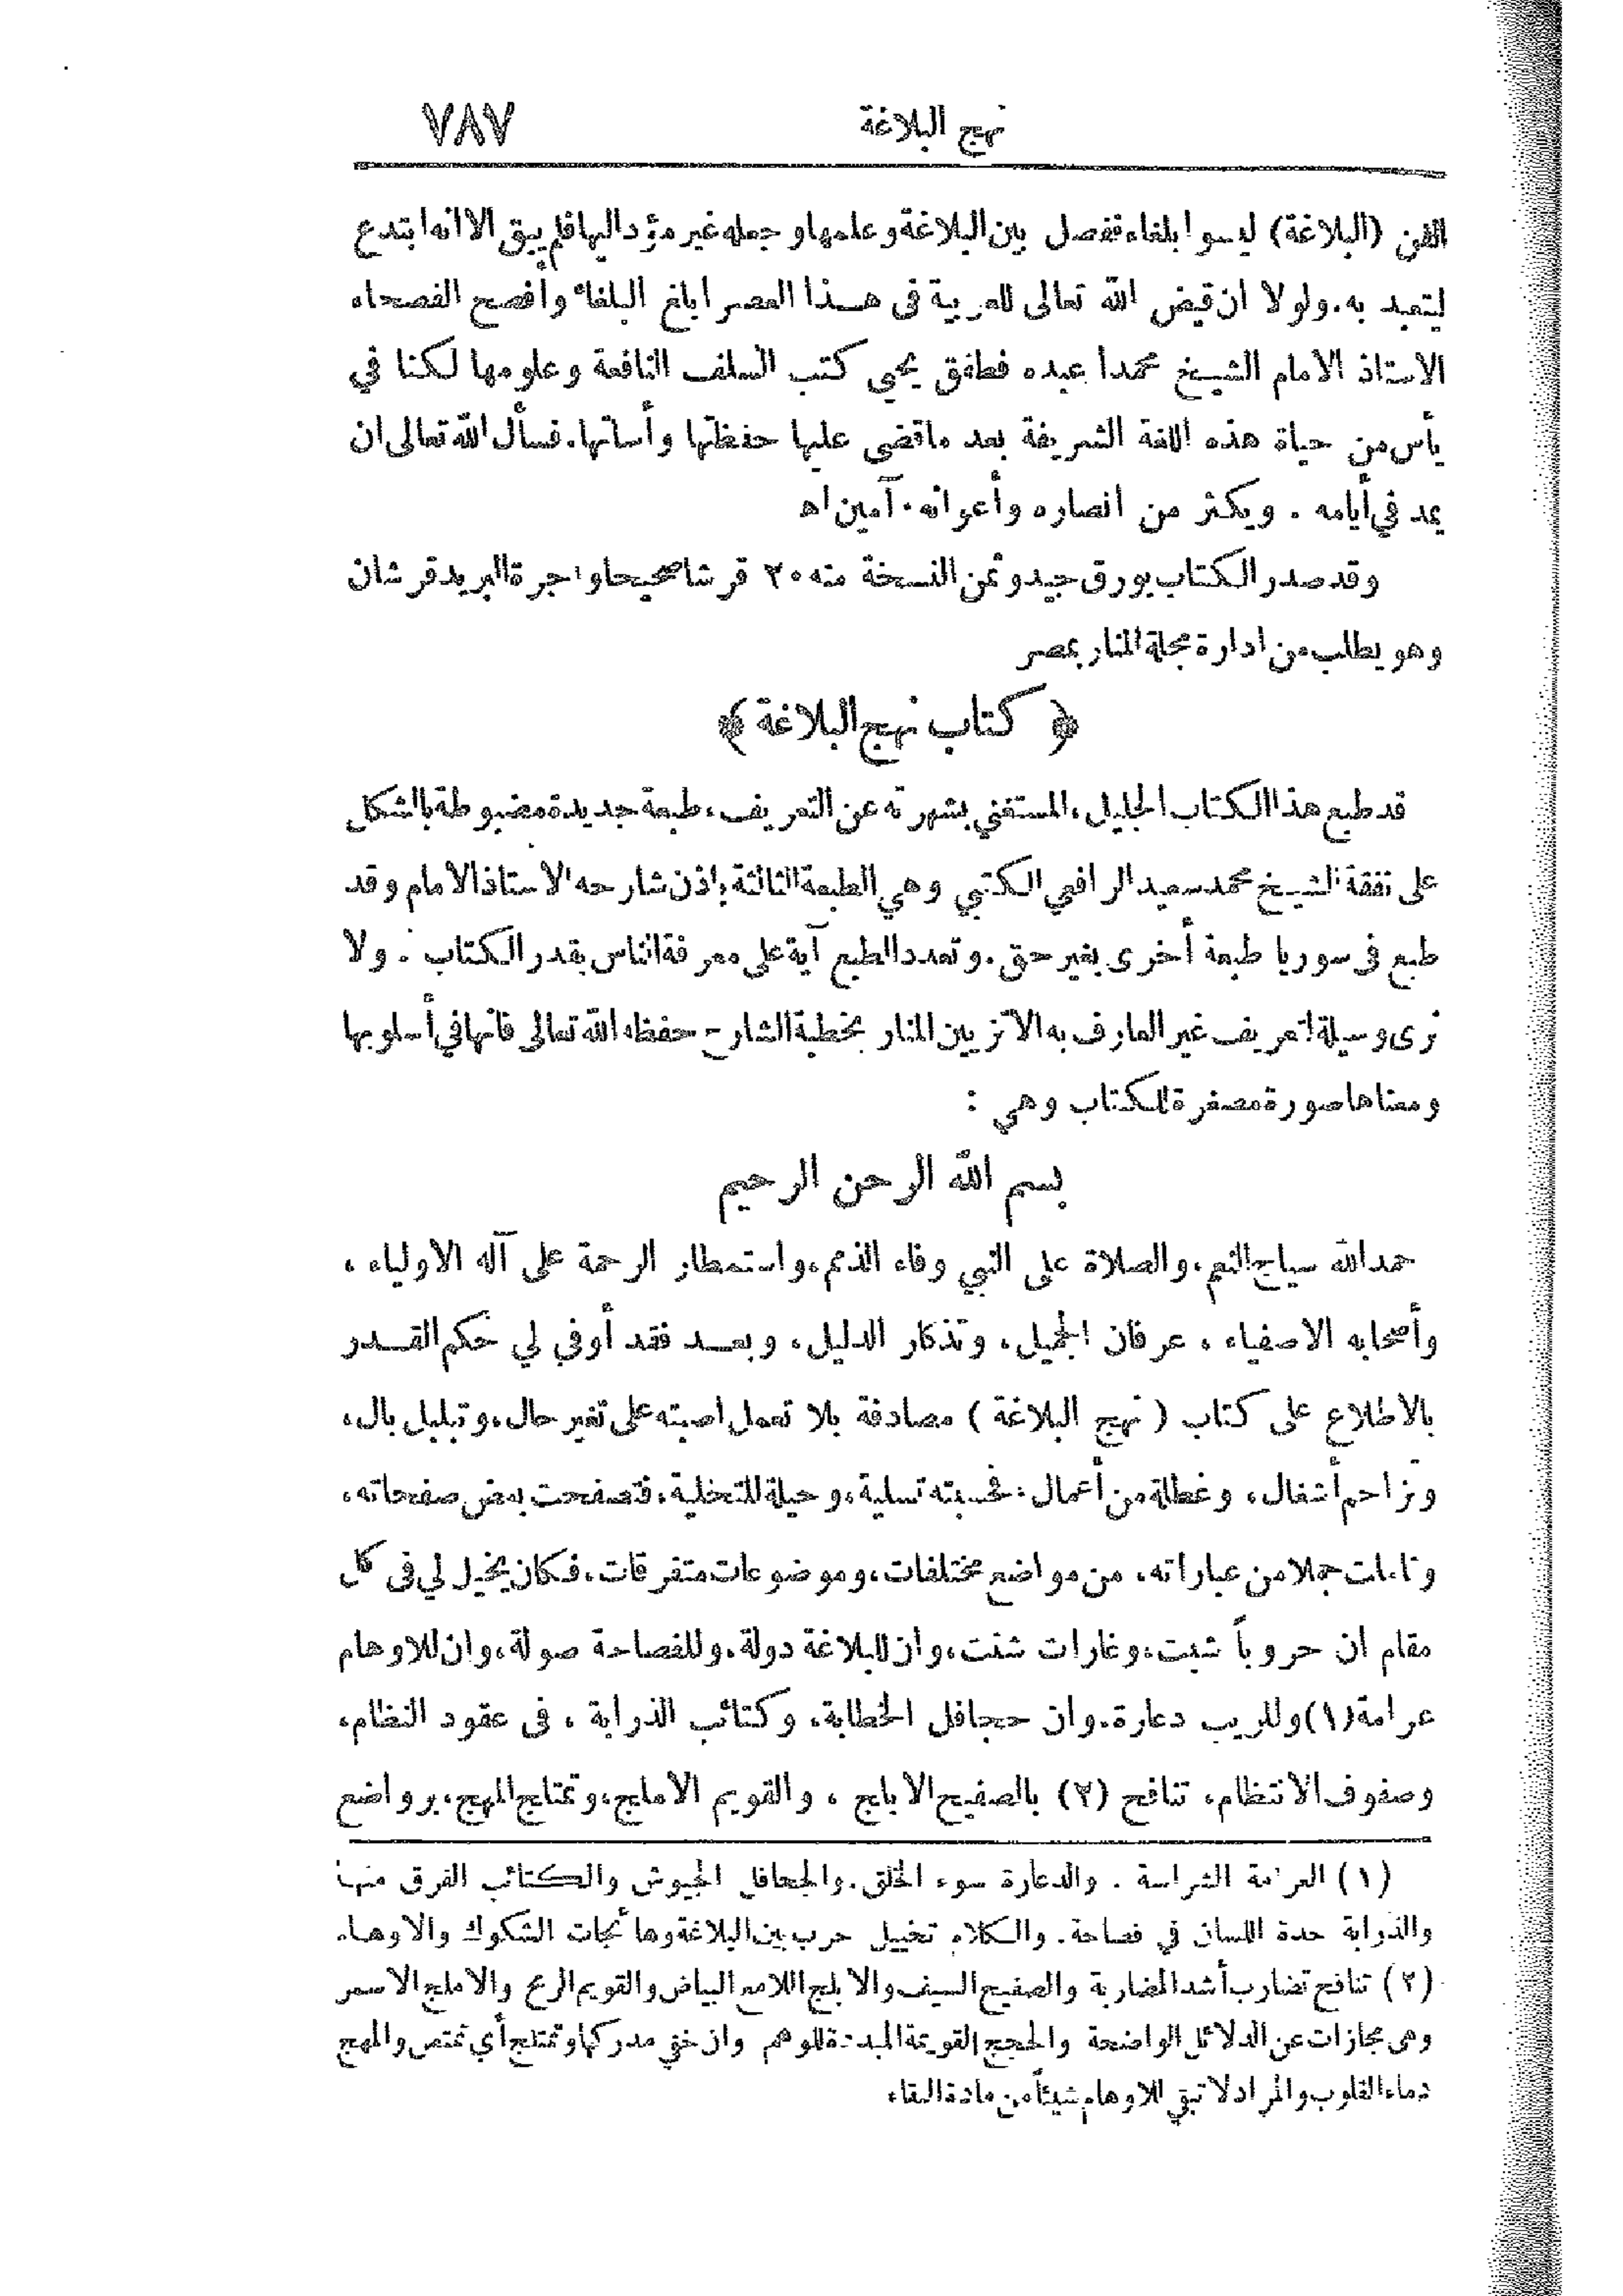 نهج البلاغة ٧٨٧
الفن (البلاغة) ليسوا بلغاء ففصل بين البلاغة وعلمها وجعله غير مؤد اليها فلم يبق الا انه ابتدع
ليتعبد به. ولولا ان قيض الله تعالى للعربية فى هذا العصر ابلغ البلغاء وأفصح الفصحاء
الاستاذ الامام الشيخ محمدا عبده فطفق يحيى كتب السلف النافعة وعلومها لكنا في
يأس من حياة هذه اللغة الشريفة بعد ما قضى عليها حفظتها وأساتها. فسأل الله تعالى ان
يمد في أيامه . ويكثر من انصاره وأعوانه . آمين اه
وقد صدر الكتاب بورق جيد وثمن النسخة منه ٢٠ قرشا صحيحا واجرة البريد قرشان
وهو يطلب من ادارة مجلة المنار بمصر
﴿ كتاب نهج البلاغة ﴾
قد طبع هذا الكتاب الجليل، المستغني بشهرته عن التعريف، طبعة جديدة مضبوطة بالشكل
على نفقة الشيخ محمد سعيد الرافعي الكتبي وهي الطبعة الثالثة باذن شارحه الاستاذ الامام وقد
طبع فى سوريا طبعة أخرى بغير حق. وتعدد الطبع آية على معرفة الناس بقدر الكتاب . ولا
نرى وسيلة لتعريف غير العارف به الا تزيين المنار بخطبة الشارح حفظه الله تعالى فانها في أسلوبها
ومعناها صورة مصغرة للكتاب وهي :
بسم الله الرحمن الرحيم
حمد الله سياج النعم، والصلاة على النبي وفاء الذمم، واستمطار الرحمة على آله الاولياء ،
وأصحابه الاصفياء ، عرفان الجميل، وتذكار الدليل، وبعد فقد أوفي لي حكم القدر
بالاطلاع على كتاب ( نهج البلاغة ) مصادفة بلا تعمل اصبته على تغير حال، وتبلبل بال،
وتزاحم أشغال، وعطلة من أعمال. فحسبته تسلية، وحيلة للتخلية، فتصفحت بعض صفحاته،
وتأملت جملا من عباراته، من مواضع مختلفات، وموضوعات متفرقات، فكان يخيل لي فى كل
مقام ان حروباً شبت، وغارات شنت، وان للبلاغة دولة، وللفصاحة صولة، وان للاوهام
عرامة (١) وللريب دعارة. وان جحافل الخطابة، وكتائب الذرابة ، فى عقود النظام،
وصفوف الانتظام، تنافح (٢) بالصفيح الابلج ، والقويم الاملج، وتمتلج المهج، برواضع
(١) العرامة الشراسة . والدعارة سوء الخلق. والجحافل الجيوش والكتائب الفرق منها
والذرابة حدة اللسان في فصاحة. والكلام تخييل حرب بين البلاغة وهائجات الشكوك والاوهام
(٢) تنافح تضارب أشد المضاربة والصفيح السيف والابلج اللامع البياض والقويم الرمح والاملج الاسمر
وهى مجازات عن الدلائل الواضحة والحجج القويمة المبددة للوهم وان خفي مدركها وتمتلج أي تمتص والمهج
دماء القلوب والمراد لا تبقي للاوهام شيئاً من مادة البقاء